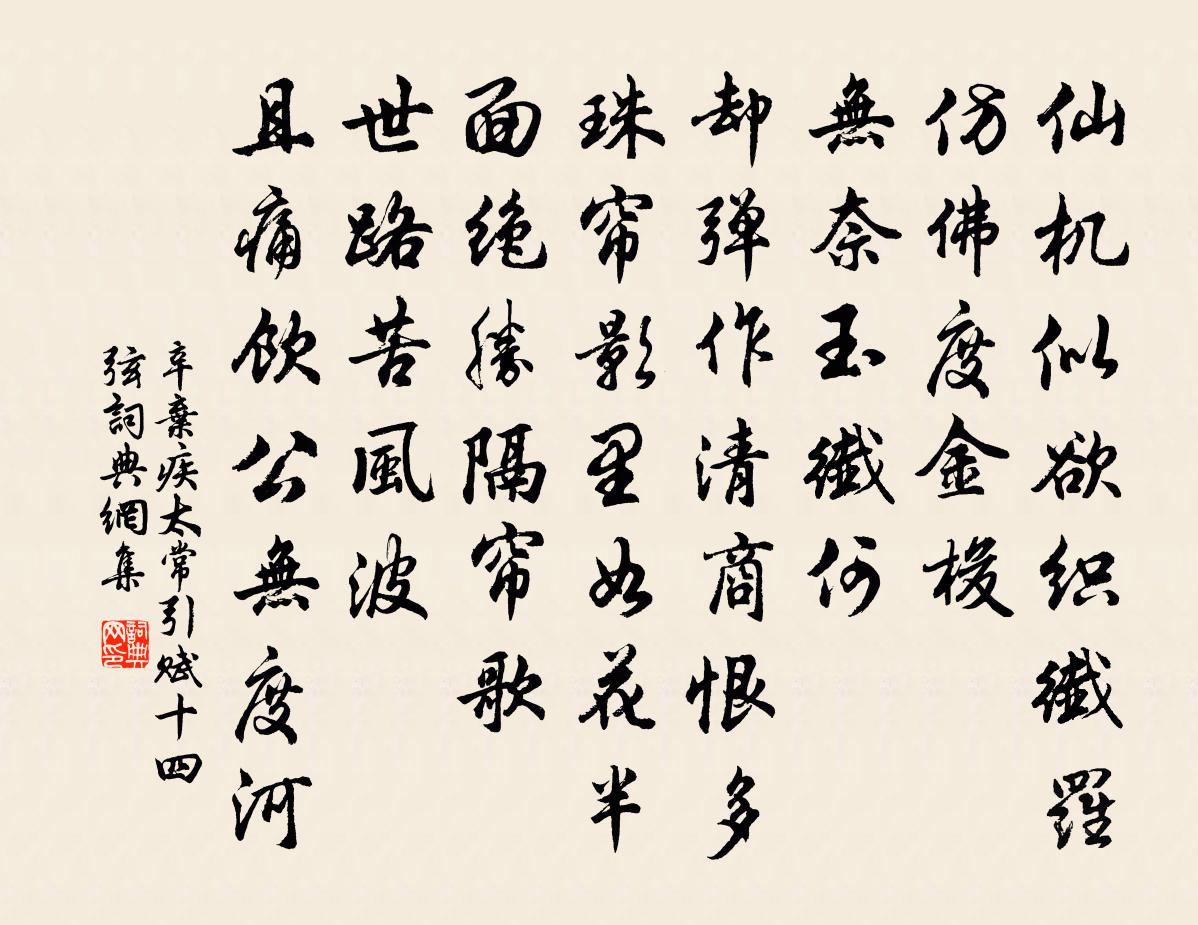 仙机似欲织纖羅
仿佛度金梭
無奈玉纖何
却弹作清商恨多
珠帘影里如花半
面绝勝隔帘歌
世路苦風波
且痛饮公無度河
辛棄疾太常引赋十四
弦詞典網集
詞典网印